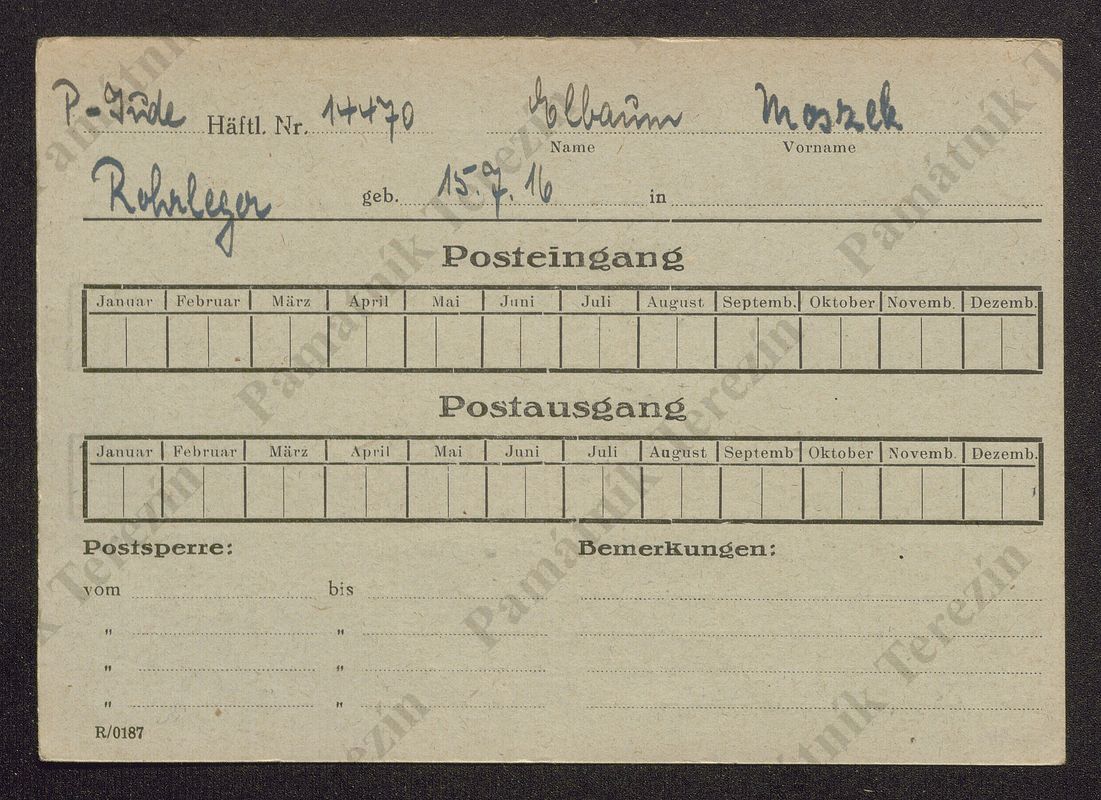 P-Jude Häftl. Nr. 14470 Elbaum Moszek
Name Vorname
Rohrleger geb. 15.7.16 in
Posteingang
Januar Februar März April Mai Juni Juli August Septemb. Oktober Novemb. Dezemb.
Postausgang
Januar Februar März April Mai Juni Juli August Septemb Oktober Novemb. Dezemb.
Postsperre: Bemerkungen:
vom bis
" "
" "
" "
R/0187
Památník Terezín